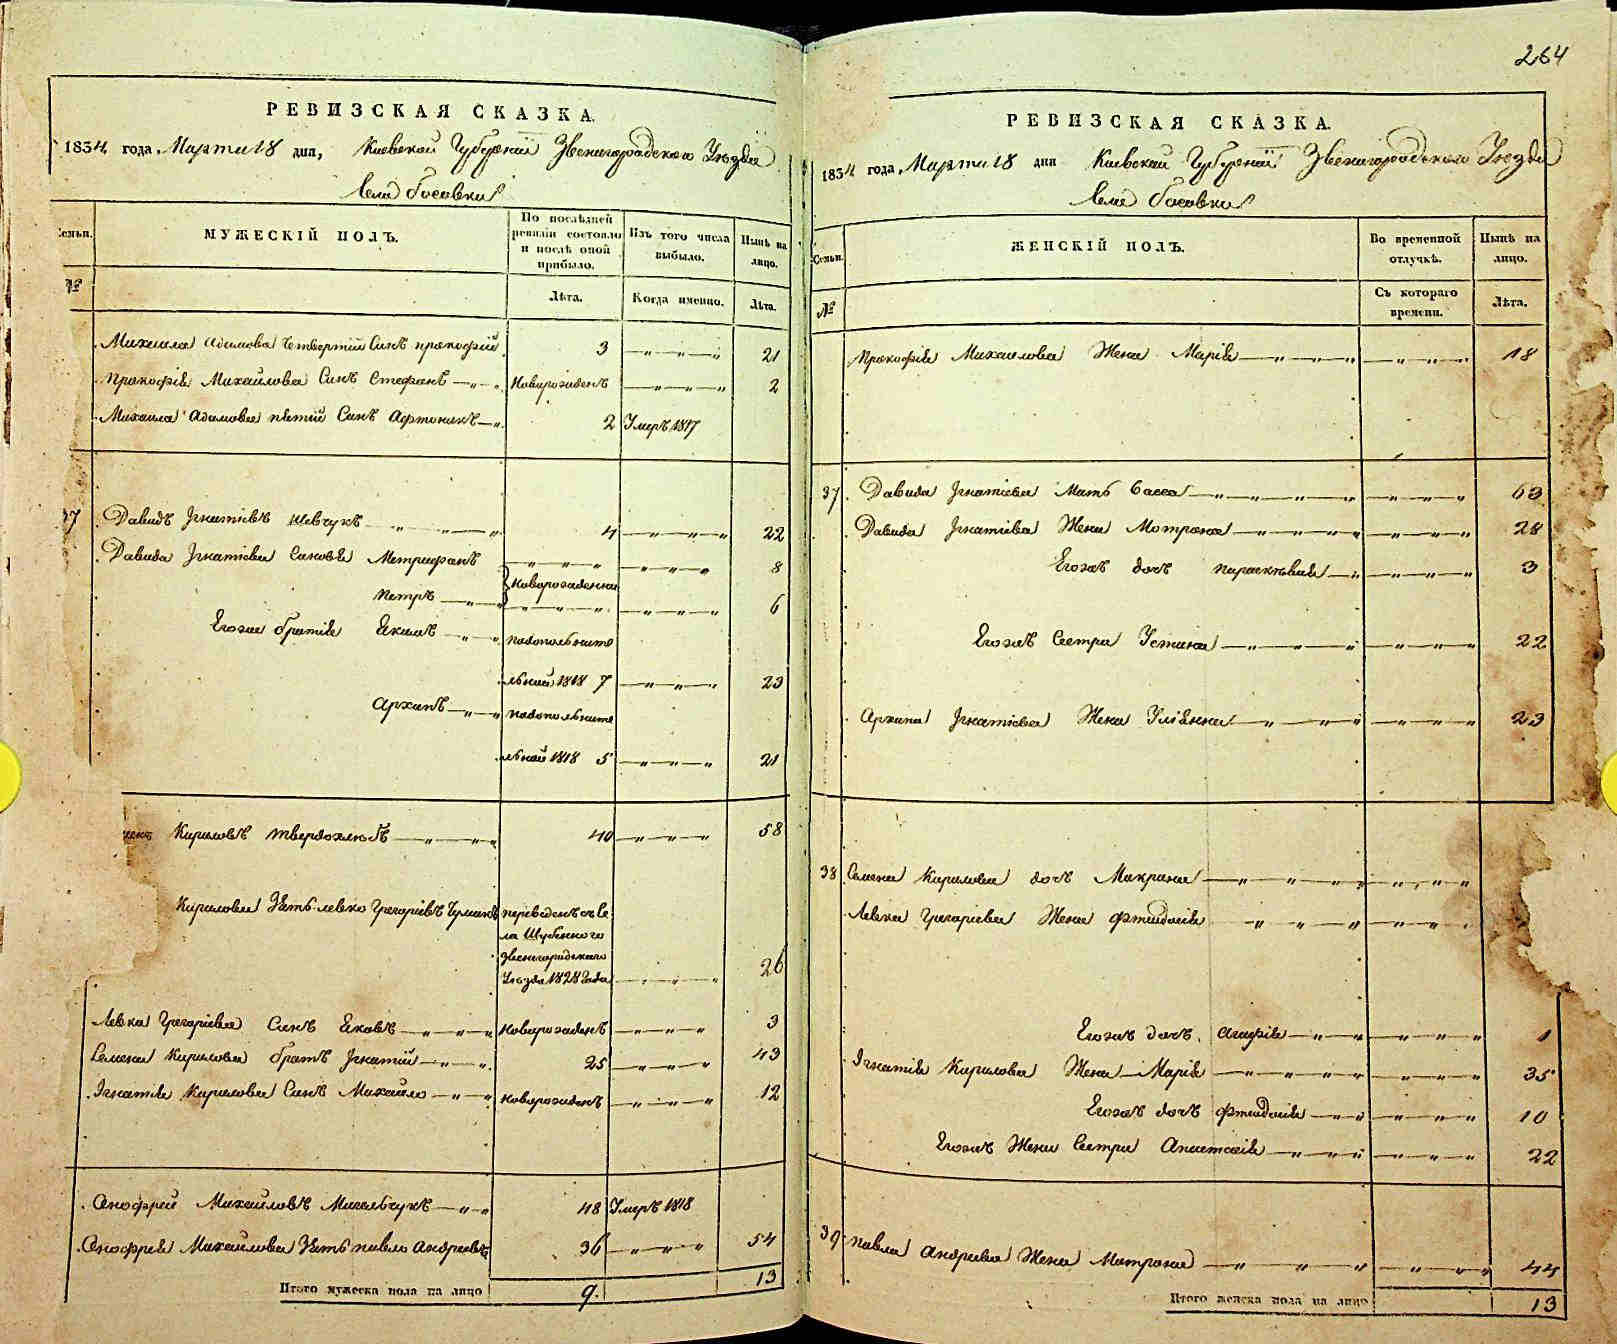 264
РЕВИЗСКАЯ СКАЗКА.
1834 года, Марта 18 дня, Киевской Губернии Звенигородского Уезда
Села Босовки
Семьи.
МУЖЕСКІЙ ПОЛЪ.
По послѣдней ревизіи состояло и послѣ оной прибыло.
Изъ того числа выбыло.
Нынѣ на лицо.
№
Лѣта.
Когда именно.
Лѣта.
Михаила Адамова Четвертий Синъ прокофій 3 21
Прокофія Михайлова Синъ Стефанъ Новорожденъ 2
Михаила Адамова пятий Синъ 2 Умеръ 1817
37 Давидъ Игнатіевъ Шевчукъ 4 22
Давида Игнатіева Синовья Митрофанъ 8
Новорожденни
Петръ 6
Егоже братія Якимъ пополните
льной 1818 7 23
Архипъ пополните
льной 1818 5 21
Кириловъ Твердохлѣбъ 40 58
Кирилова Зять левко Григоріевъ переведенъ съ Се
ла
Звенигородского
Уезда 1828 Года 26
Левка Григоріева Синъ Яковъ Новорожденъ 3
Семена Кирилова братъ Игнатій 25 43
Игнатія Кирилова Синъ Михайло Новорожденъ 12
Онофрей Михайловъ 48 Умеръ 1818
Онофрія Михайлова Зять павло Андреевъ 36 54
Итого мужеска пола на лицо 9. 13
РЕВИЗСКАЯ СКАЗКА.
1834 года, Марта 18 дня Киевской Губернии Звенигородского Уезда
Села Босовки
Семьи.
ЖЕНСКІЙ ПОЛЪ.
Во временной отлучкѣ.
Нынѣ на лицо.
№
Съ котораго времени.
Лѣта.
Прокофія Михаилова Жена Марія 18
37 Давида Игнатіева Мать Васса 63
Давида Игнатіева Жена Мотрона 28
Егожъ дочъ параскѣвия 3
Егожъ Сестра Устина 22
Архипа Игнатіева Жена Уліянна 23
38 Семена Кирилова дочъ Макрина
Левка Григоріева Жена Фтеидосія
Егожъ дочъ Агафія 1
Игнатія Кирилова Жена Марія 35
Егожъ дочъ Фтеидосія 10
Егожъ Жены Сестра Анастасія 22
39 павла Андреева Жена Матрона 44
Итого женска пола на лицо 13